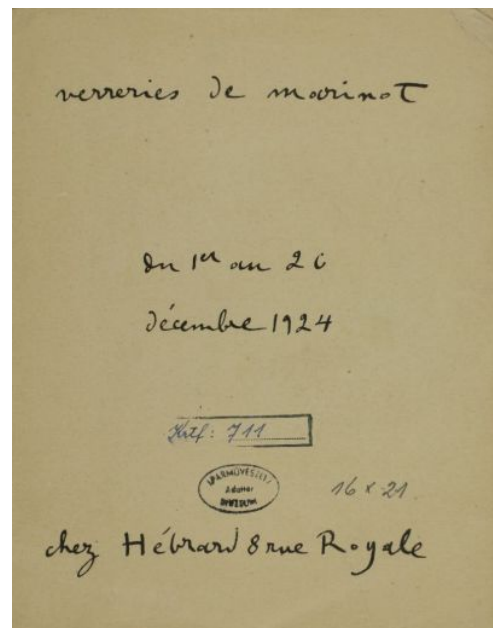 verreries de marinot
du 1er au 20
décembre 1924
Krtf: 711
IPARMŰVÉSZETI
Adattár
MÚZEUM
16 x 21.
chez Hébrard 8 rue Royale